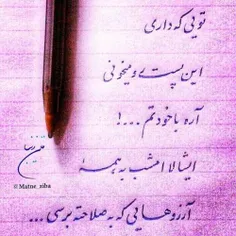 تویی که داری
این پست رو میخونی
آره با خودتم ...!
ایشالا امشب به همهٔ
آرزوهایی که به صلاحته برسی ...
متن زیبا
@Matne_ziba